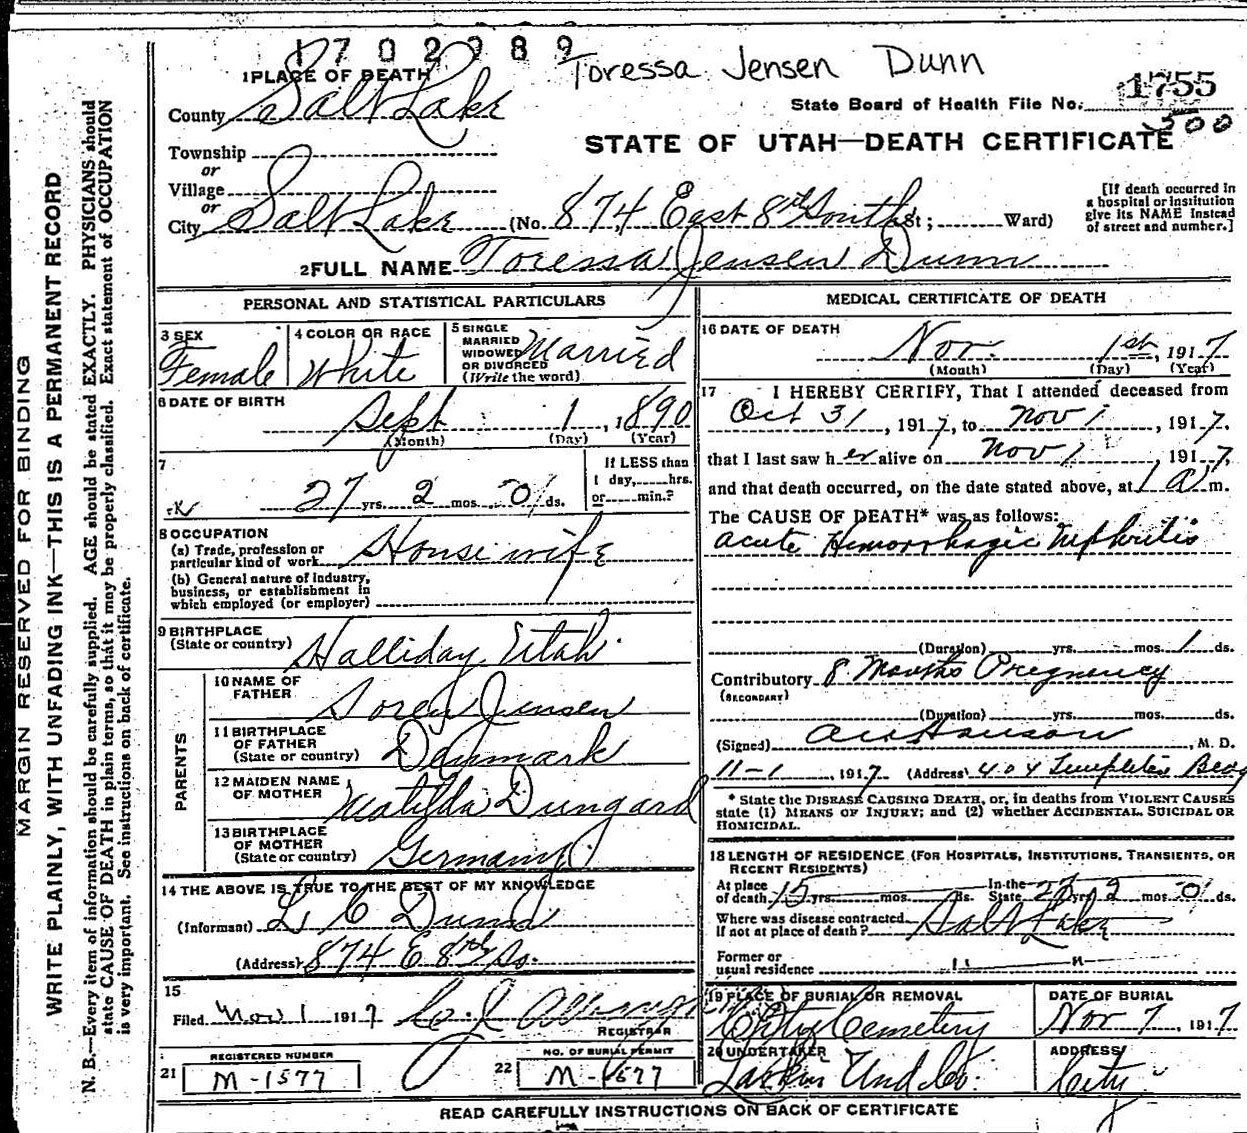 1702989
Toressa Jensen Dunn
1 PLACE OF DEATH
1755
County Salt Lake
State Board of Health File No.
500
Township
STATE OF UTAH—DEATH CERTIFICATE
or
Village
or
City Salt Lake (No. 874 East 8th South St; Ward)
[If death occurred in
a hospital or institution
give its NAME instead
of street and number.]
2 FULL NAME Toressa Jensen Dunn
PERSONAL AND STATISTICAL PARTICULARS
3 SEX
Female
4 COLOR OR RACE
White
5 SINGLE
MARRIED
WIDOWED
OR DIVORCED
(Write the word)
Married
6 DATE OF BIRTH
Sept 1, 1890
(Month) (Day) (Year)
7
27 yrs. 2 mos. 0 ds.
If LESS than
1 day, hrs.
or min.?
8 OCCUPATION
(a) Trade, profession or
particular kind of work Housewife
(b) General nature of industry,
business, or establishment in
which employed (or employer)
9 BIRTHPLACE
(State or country) Halliday Utah.
PARENTS
10 NAME OF
FATHER Soren Jensen
11 BIRTHPLACE
OF FATHER
(State or country) Denmark
12 MAIDEN NAME
OF MOTHER Matilda Dungard
13 BIRTHPLACE
OF MOTHER
(State or country) Germany
14 THE ABOVE IS TRUE TO THE BEST OF MY KNOWLEDGE
(Informant) L C Dunn
(Address) 874 E 8th So.
15
Filed Nov 1 1917
REGISTRAR
REGISTERED NUMBER
21 M-1577
NO. OF BURIAL PERMIT
22 M-1577
MEDICAL CERTIFICATE OF DEATH
16 DATE OF DEATH
Nov. 1st, 1917
(Month) (Day) (Year)
17 I HEREBY CERTIFY, That I attended deceased from
Oct 31, 1917, to Nov 1, 1917,
that I last saw her alive on Nov 1, 1917,
and that death occurred, on the date stated above, at 1 a m.
The CAUSE OF DEATH* was as follows:
Acute Hemorrhagic Nephritis
(Duration) yrs. mos. 1 ds.
Contributory 8 Months Pregnency
(SECONDARY)
(Duration) yrs. mos. ds.
(Signed) Hanson, M. D.
11-1, 1917 (Address) 404 Templeton Bldg
* State the DISEASE CAUSING DEATH, or, in deaths from VIOLENT CAUSES
state (1) MEANS OF INJURY; and (2) whether ACCIDENTAL, SUICIDAL OR
HOMICIDAL.
18 LENGTH OF RESIDENCE (FOR HOSPITALS, INSTITUTIONS, TRANSIENTS, OR
RECENT RESIDENTS)
At place
of death 15 yrs. mos. ds.
In the
State 27 yrs. 2 mos. 0 ds.
Where was disease contracted
If not at place of death? Salt Lake
Former or
usual residence " "
19 PLACE OF BURIAL OR REMOVAL
City Cemetery
DATE OF BURIAL
Nov 7, 1917
20 UNDERTAKER
Larkin Und Co.
ADDRESS
City
READ CAREFULLY INSTRUCTIONS ON BACK OF CERTIFICATE
MARGIN RESERVED FOR BINDING
WRITE PLAINLY, WITH UNFADING INK—THIS IS A PERMANENT RECORD
N. B.—Every item of information should be carefully supplied. AGE should be stated EXACTLY. PHYSICIANS should
state CAUSE OF DEATH in plain terms, so that it may be properly classified. Exact statement of OCCUPATION
is very important. See instructions on back of certificate.